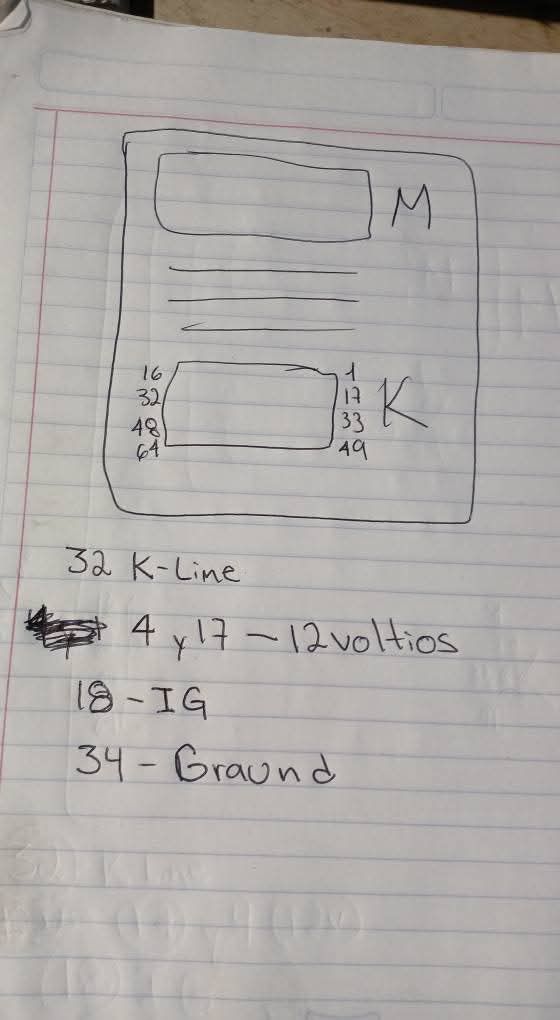 M
16 1
32 17 K
48 33
64 49
32 K-Line
4 y 17 - 12 voltios
18 - IG
34 - Graund